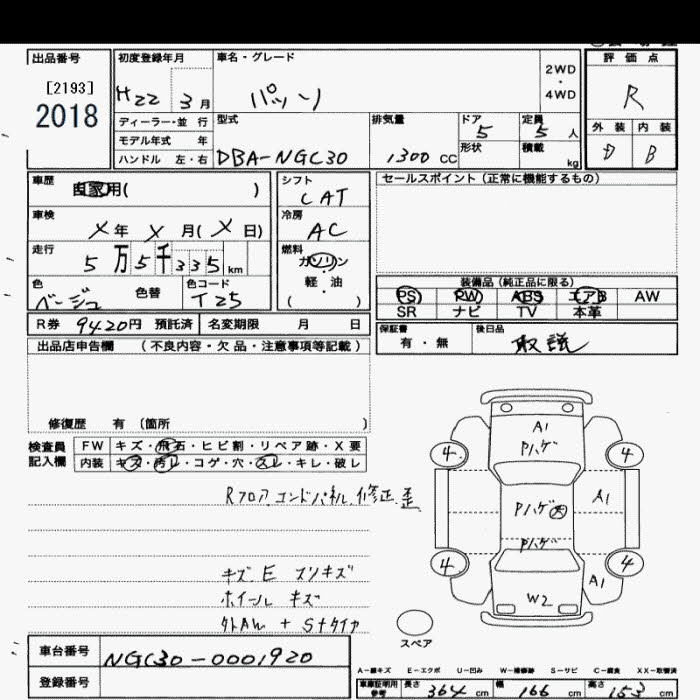 出品番号 初度登録年月 車名・グレード 2WD・4WD 評価点
[2193]
2018
H22 3月 パッソ R
ディーラー・並行 型式 排気量 ドア 定員 外装 内装
モデル年式 年 DBA-NGC30 1300 CC 5 5人 D B
ハンドル 左・右 形状 積載 kg
車歴 自家用( ) シフト CAT セールスポイント(正常に機能するもの)
車検 X年 X月(X日) 冷房 AC
走行 5万5千335km 燃料 ガソリン
軽・油
( )
色 ベージュ 色替 色コード T25
装備品(純正品に限る)
PS PW ABS エアB AW
SR ナビ TV 本革
R券 9420円 預託済 名変期限 月 日
保証書 有・無 後日品 取説
出品店申告欄 (不良内容・欠品・注意事項等記載)
修復歴 有 (箇所 )
検査員記入欄 FW キズ・飛石・ヒビ割・リペア跡・X要
内装 キズ・汚レ・コゲ・穴・スレ・キレ・破レ
Rフロア エンドパネル 修正 歪
キズE スリキズ
ホイール キズ
外AW + Sタイヤ
A1
Pハゲ
4 4
Pハゲ 大
A1
Pハゲ
4 4
A1
W2
スペア
車台番号 NGC30-0001920
登録番号
A-線キズ E-エクボ U-凹み W-補修跡 S-サビ C-腐食 XX-取替済
車庫証明用参考 長さ 364 cm 幅 166 cm 高さ 153 cm